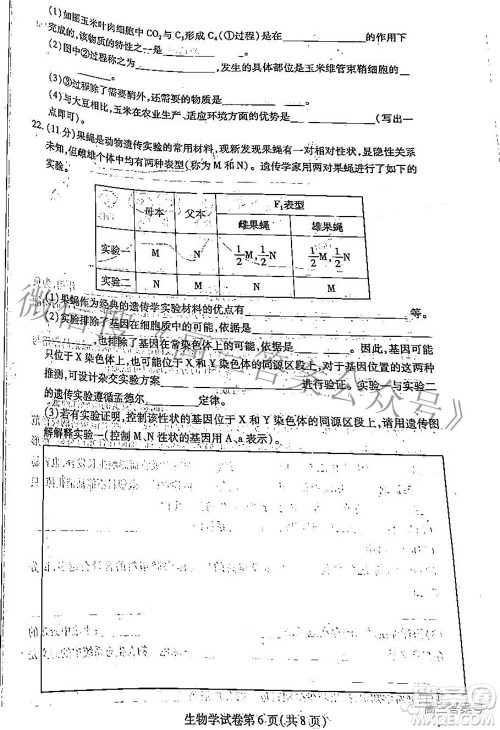 (1)如图玉米叶肉细胞中 CO₂ 与 C₃ 形成 C₄ (①过程)是在____________的作用下
完成的,该物质的特性之一是____________。
(2)图中②过程称为____________,发生的具体部位是玉米维管束鞘细胞的
____________。
(3)③过程除了需要酶外,还需要的物质是____________。
(4)与大豆相比,玉米在农业生产、适应环境方面的优势是____________(写出一
点即可)。
22.(11 分)果蝇是动物遗传实验的常用材料,现新发现果蝇有一对相对性状,显隐性关系
未知,但雌雄个体中均有两种表型(称为 M 和 N)。遗传学家用两对果蝇进行了如下的
实验。
母本 父本 F₁表型
雌果蝇 雄果蝇
实验一 M N 1/2M,1/2N 1/2M,1/2N
实验二 N M N M
(1)果蝇作为经典的遗传学实验材料的优点有____________等。
(2)实验排除了基因在细胞质中的可能,依据是____________
____________,也排除了基因在常染色体上的可能,依据是____________。因此,基因可能
只位于 X 染色体上,也可能位于 X 和 Y 染色体的同源区段上,要确定基因位置的这两种
可能,可设计杂交实验方案____________进行验证。实验一与实验二
的遗传实验遵循孟德尔____________定律。
(3)若有实验证明,控制该性状的基因位于 X 和 Y 染色体的同源区段上,请用遗传图
解解释实验一(控制 M、N 性状的基因用 A、a 表示)。
生物学试卷第 6 页(共 8 页)